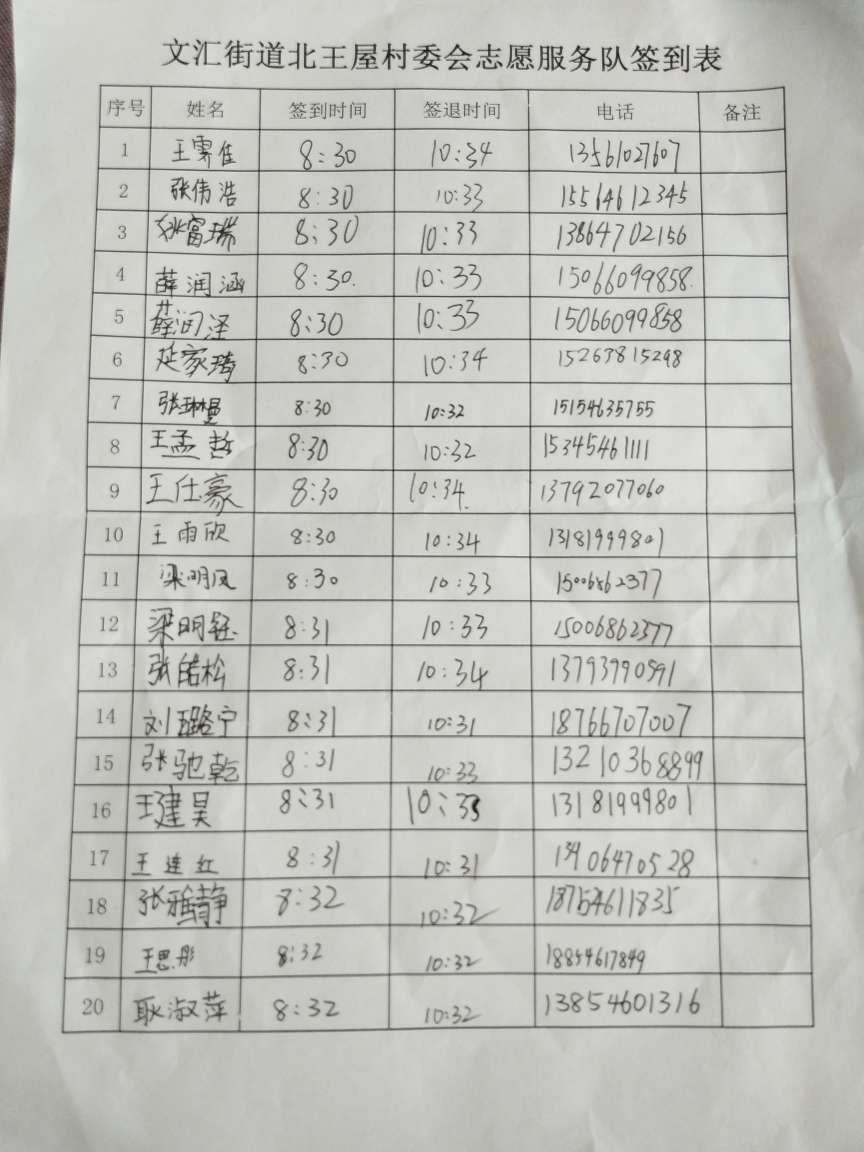 文汇街道北王屋村委会志愿服务队签到表
序号 姓名 签到时间 签退时间 电话 备注
1 王霁佳 8:30 10:34 13561027607
2 张伟浩 8:30 10:33 15564612345
3 富瑞 8:30 10:33 13864702156
4 薛润涵 8:30. 10:33 15066099858.
5 薛润泽 8:30 10:33 15066099858
6 延家琦 8:30 10:34 15263815298
7 张琳曼 8:30 10:32 15154635755
8 王孟哲 8:30 10:32 15345461111
9 王仕豪 8:30 10:34. 13792077060
10 王雨欣 8:30 10:34 13181999801
11 梁明凤 8:30 10:33 15006862377
12 梁明钰 8:31 10:33 15006862377
13 张皓松 8:31 10:34 13793990591
14 刘璐宁 8:31 10:31 18766707007
15 张驰乾 8:31 10:33 13210368899
16 王建昊 8:31 10:33 13181999801
17 王连红 8:31 10:31 06470528
18 张雅静 8:32 10:32 18754611835
19 王思彤 8:32 10:32 18854617849
20 耿淑萍 8:32 10:32 13854601316